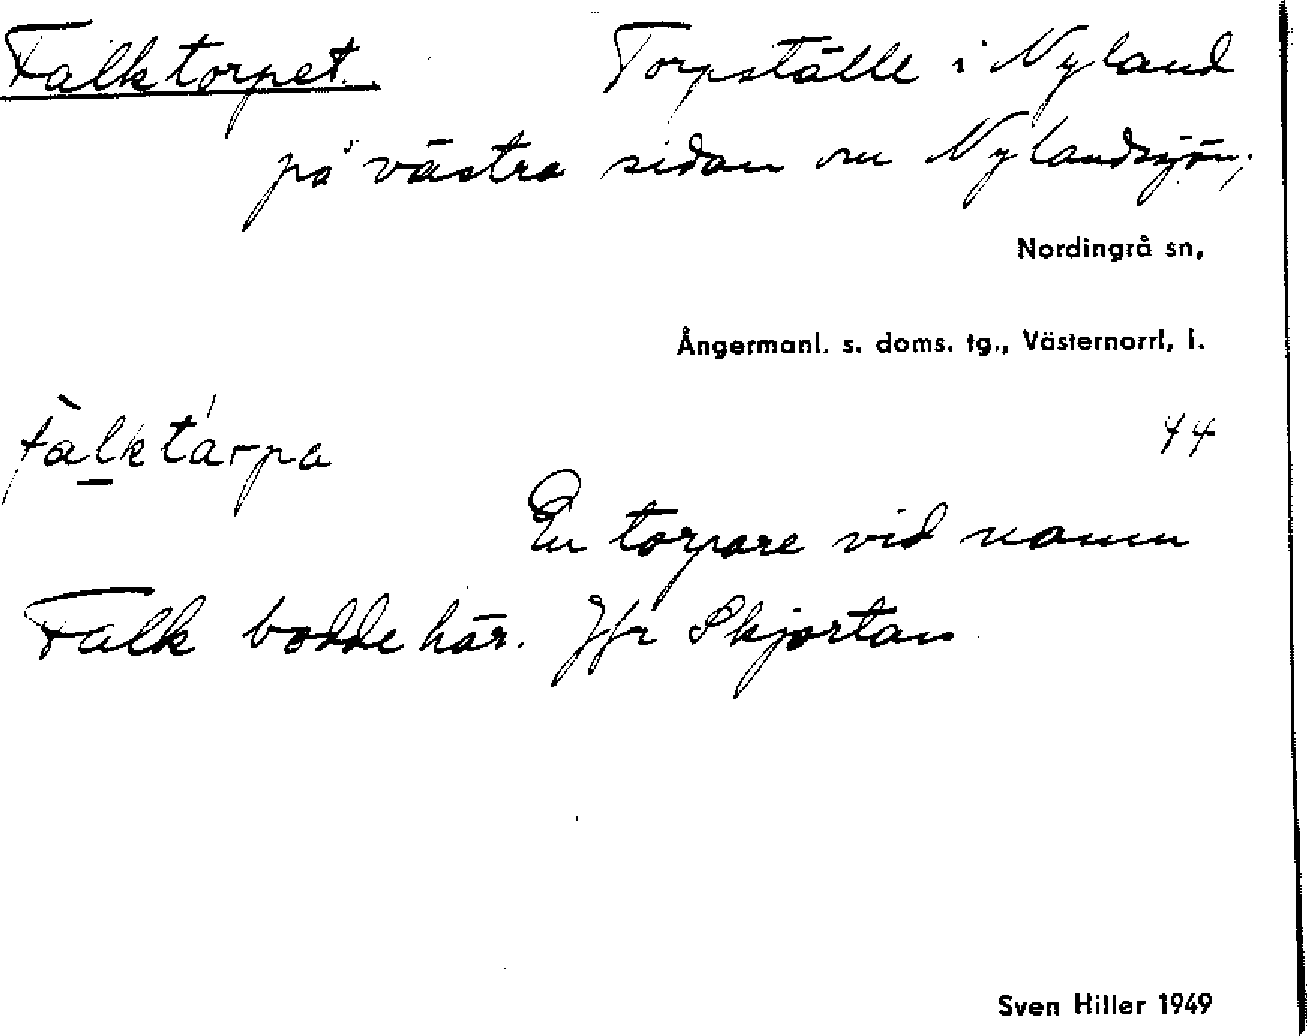 Falktorpet. Torpställe i Nyland
på västra sidan om Nylandssjön;
Nordingrå sn,
Ångermanl. s. doms. tg., Västernorrl, l.
fàlktárpa 44
En torpare vid namn
Falk bodde här. Jfr Skjortan
Sven Hiller 1949